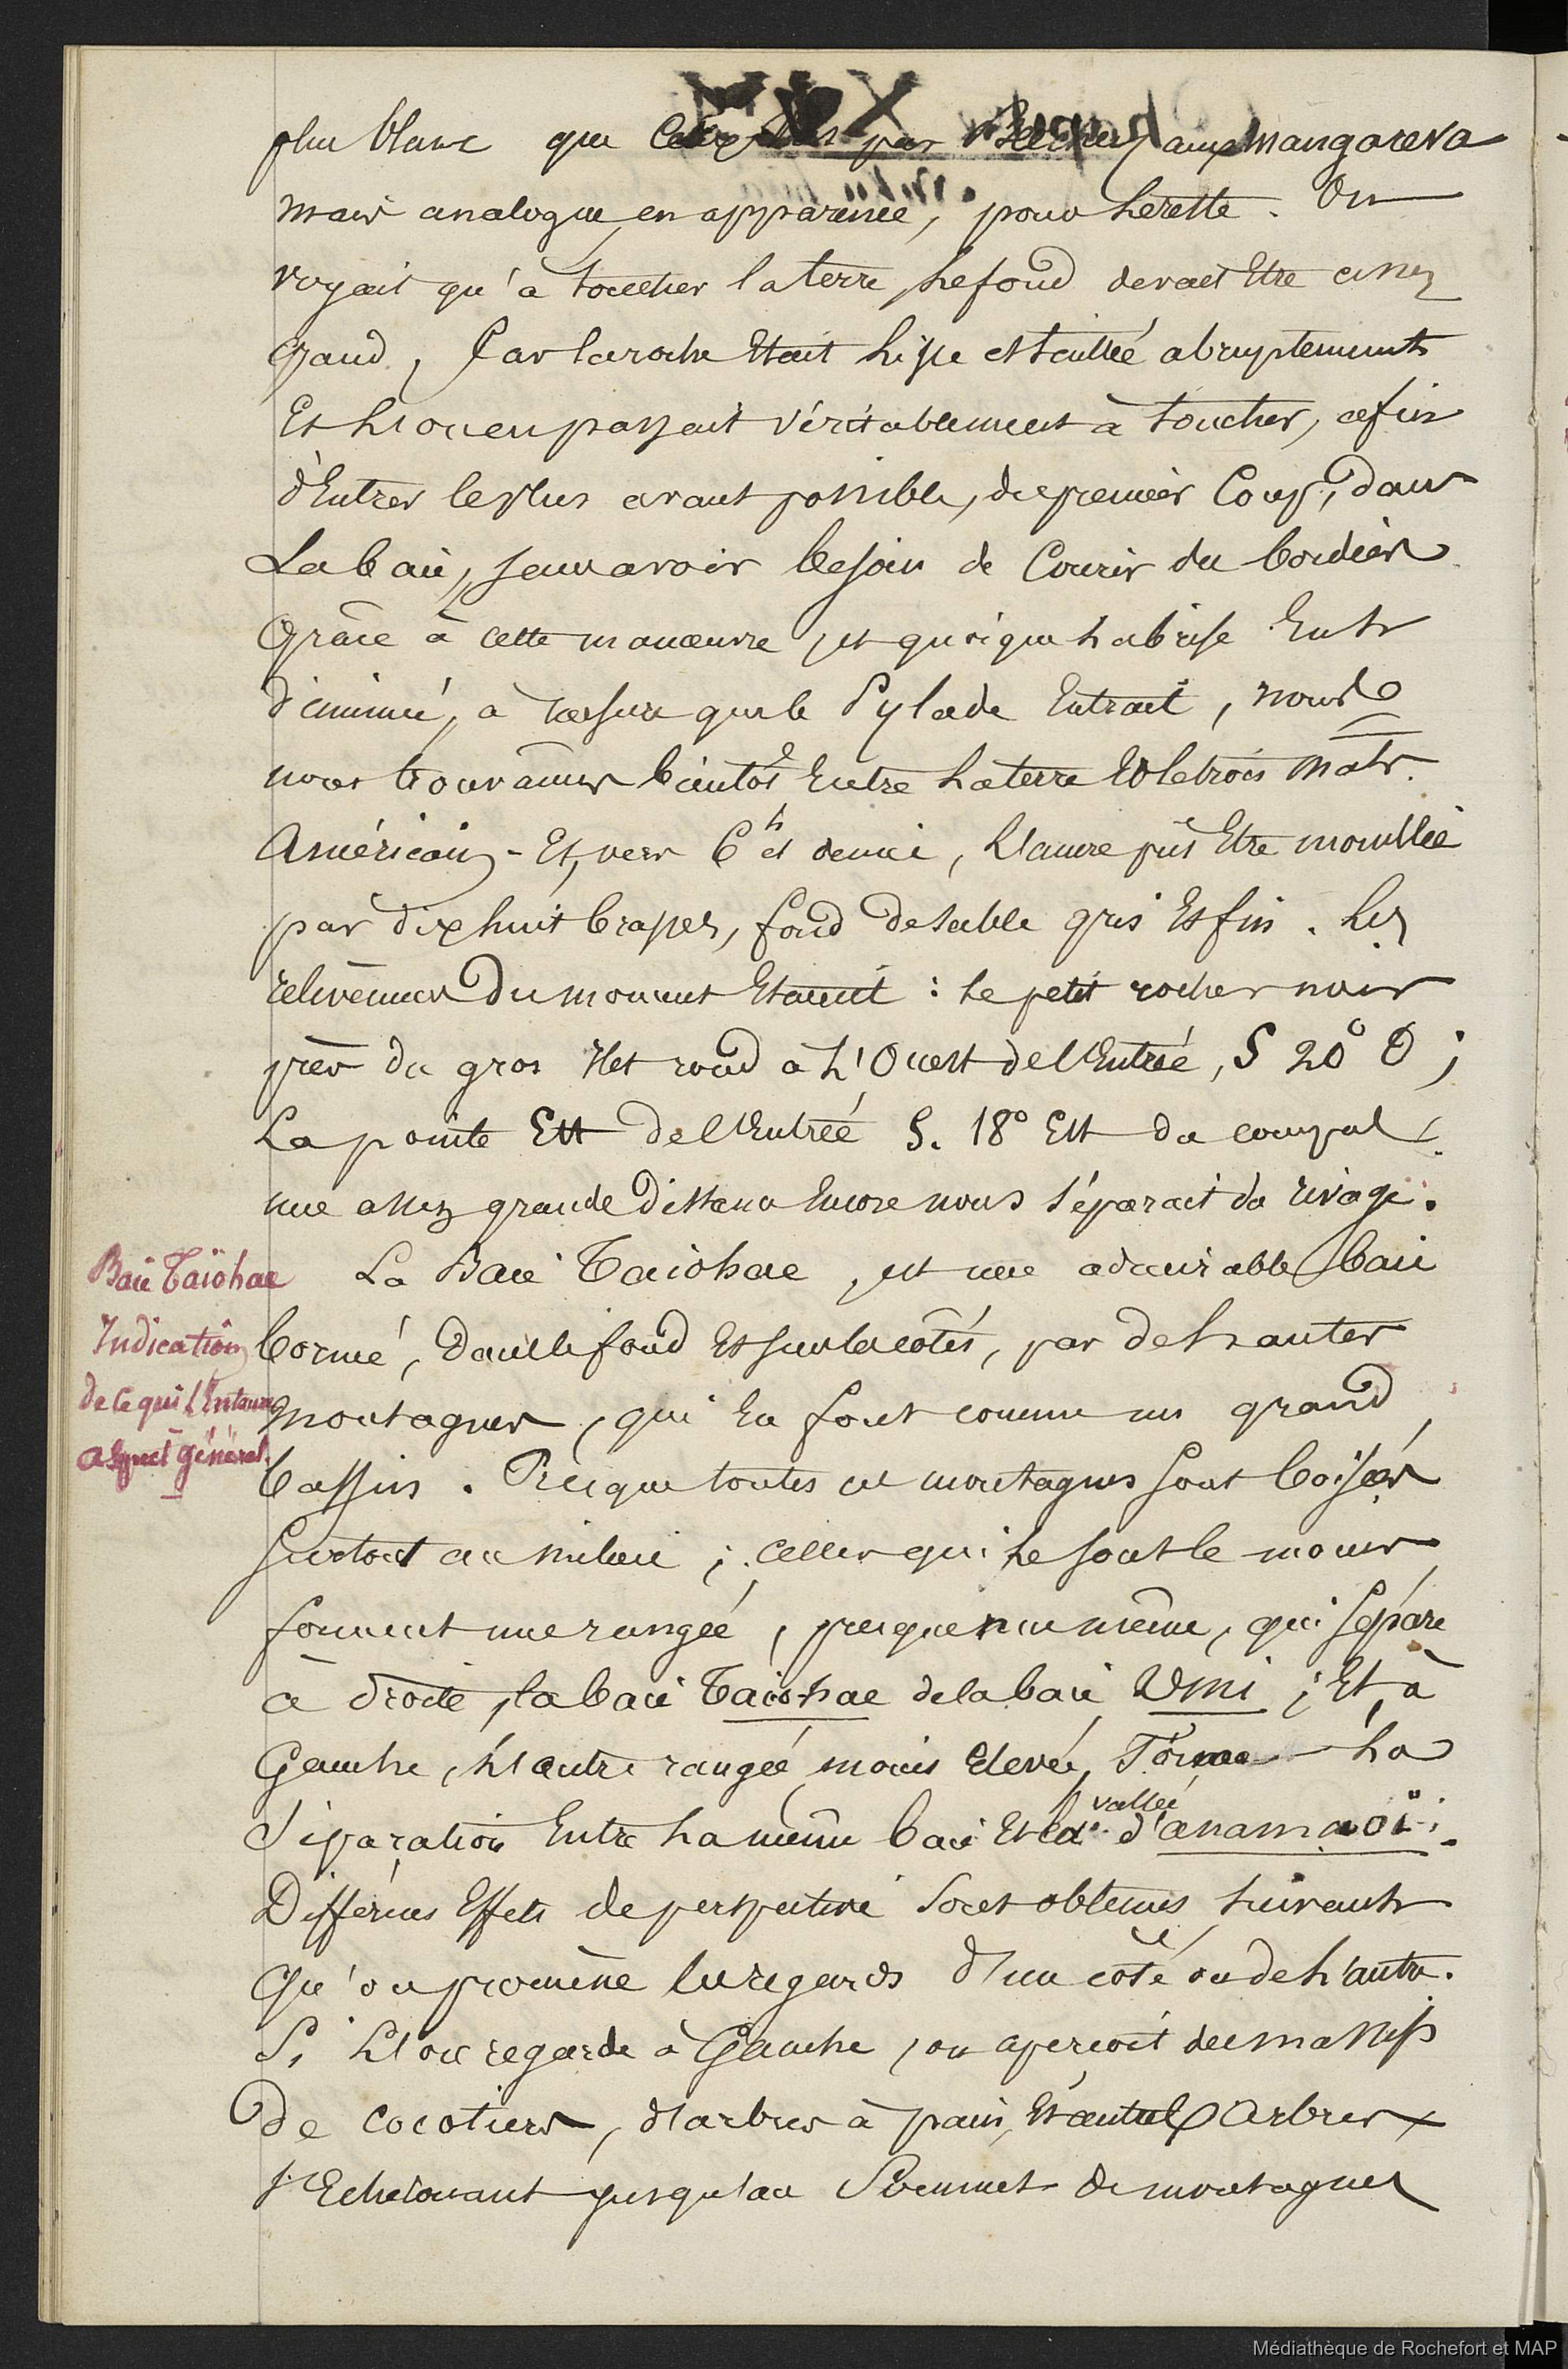 plus blanc que par aux mangareva
mais analogue, en apparence, pour le reste. On
voyait qu'à toucher la terre, le fond devait Etre assez
grand, Car la roche Etait lisse et taillée abruptement
Et l'on en passait véritablement à toucher, afin
d'Entrer le plus avant possible, du premier Coup, dans
La baie, sans avoir besoin de Courir du bordées.
Grâce à cette manœuvre, et quoique la brise Eut
diminué, à mesure que le Pylade Entrait, nous
nous trouvâmes bientôt Entre la terre Et le trois mâts
Américain - Et, vers 6h et demie, L'ancre put Etre mouillée
par dix huit brasses, fond de sable gris Et fin. Les
relèvemens du moment Etaient : le petit rocher noir
près du gros Ilet rond à L'Ouest de l'Entrée, S 20° O ;
La pointe Est de l'Entrée S. 18° Est du compas.
une assez grande Distance Encore nous séparait du rivage.
Baie Taïohae
Indication
de ce qui l'Entoure
aspect général.
La Baie Taiohae, est une admirable baie
bornée, Dans le fond Et sur les côtés, par de hautes
montagnes, qui En font comme un grand
bassin. Presque toutes ces montagnes sont boisées
surtout au milieu ; celles qui le sont le moins
forment une rangée, presque nue même, qui sépare
à droite, la baie Taiohae de la baie Umi ; Et, à
Gauche, L'autre rangée, moins Elevée, forme la
séparation Entre la même baie Et la vallée d'anamaoï.
Différens Effets de perspective sont obtenus, suivant
Qu'on promène les regards d'un côté ou de l'autre.
Si L'on regarde à Gauche, on aperçoit des massifs
de cocotiers, d'arbres à pain, Et autres Arbres
s'Echelonant jusqu'au Sommet de montagnes
Médiathèque de Rochefort et MAP